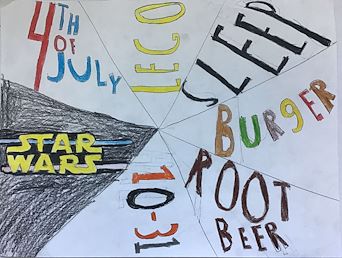 4TH
OF
JULY
LEGO
SLEEP
BURGER
ROOT
BEER
10-31
STAR
WARS